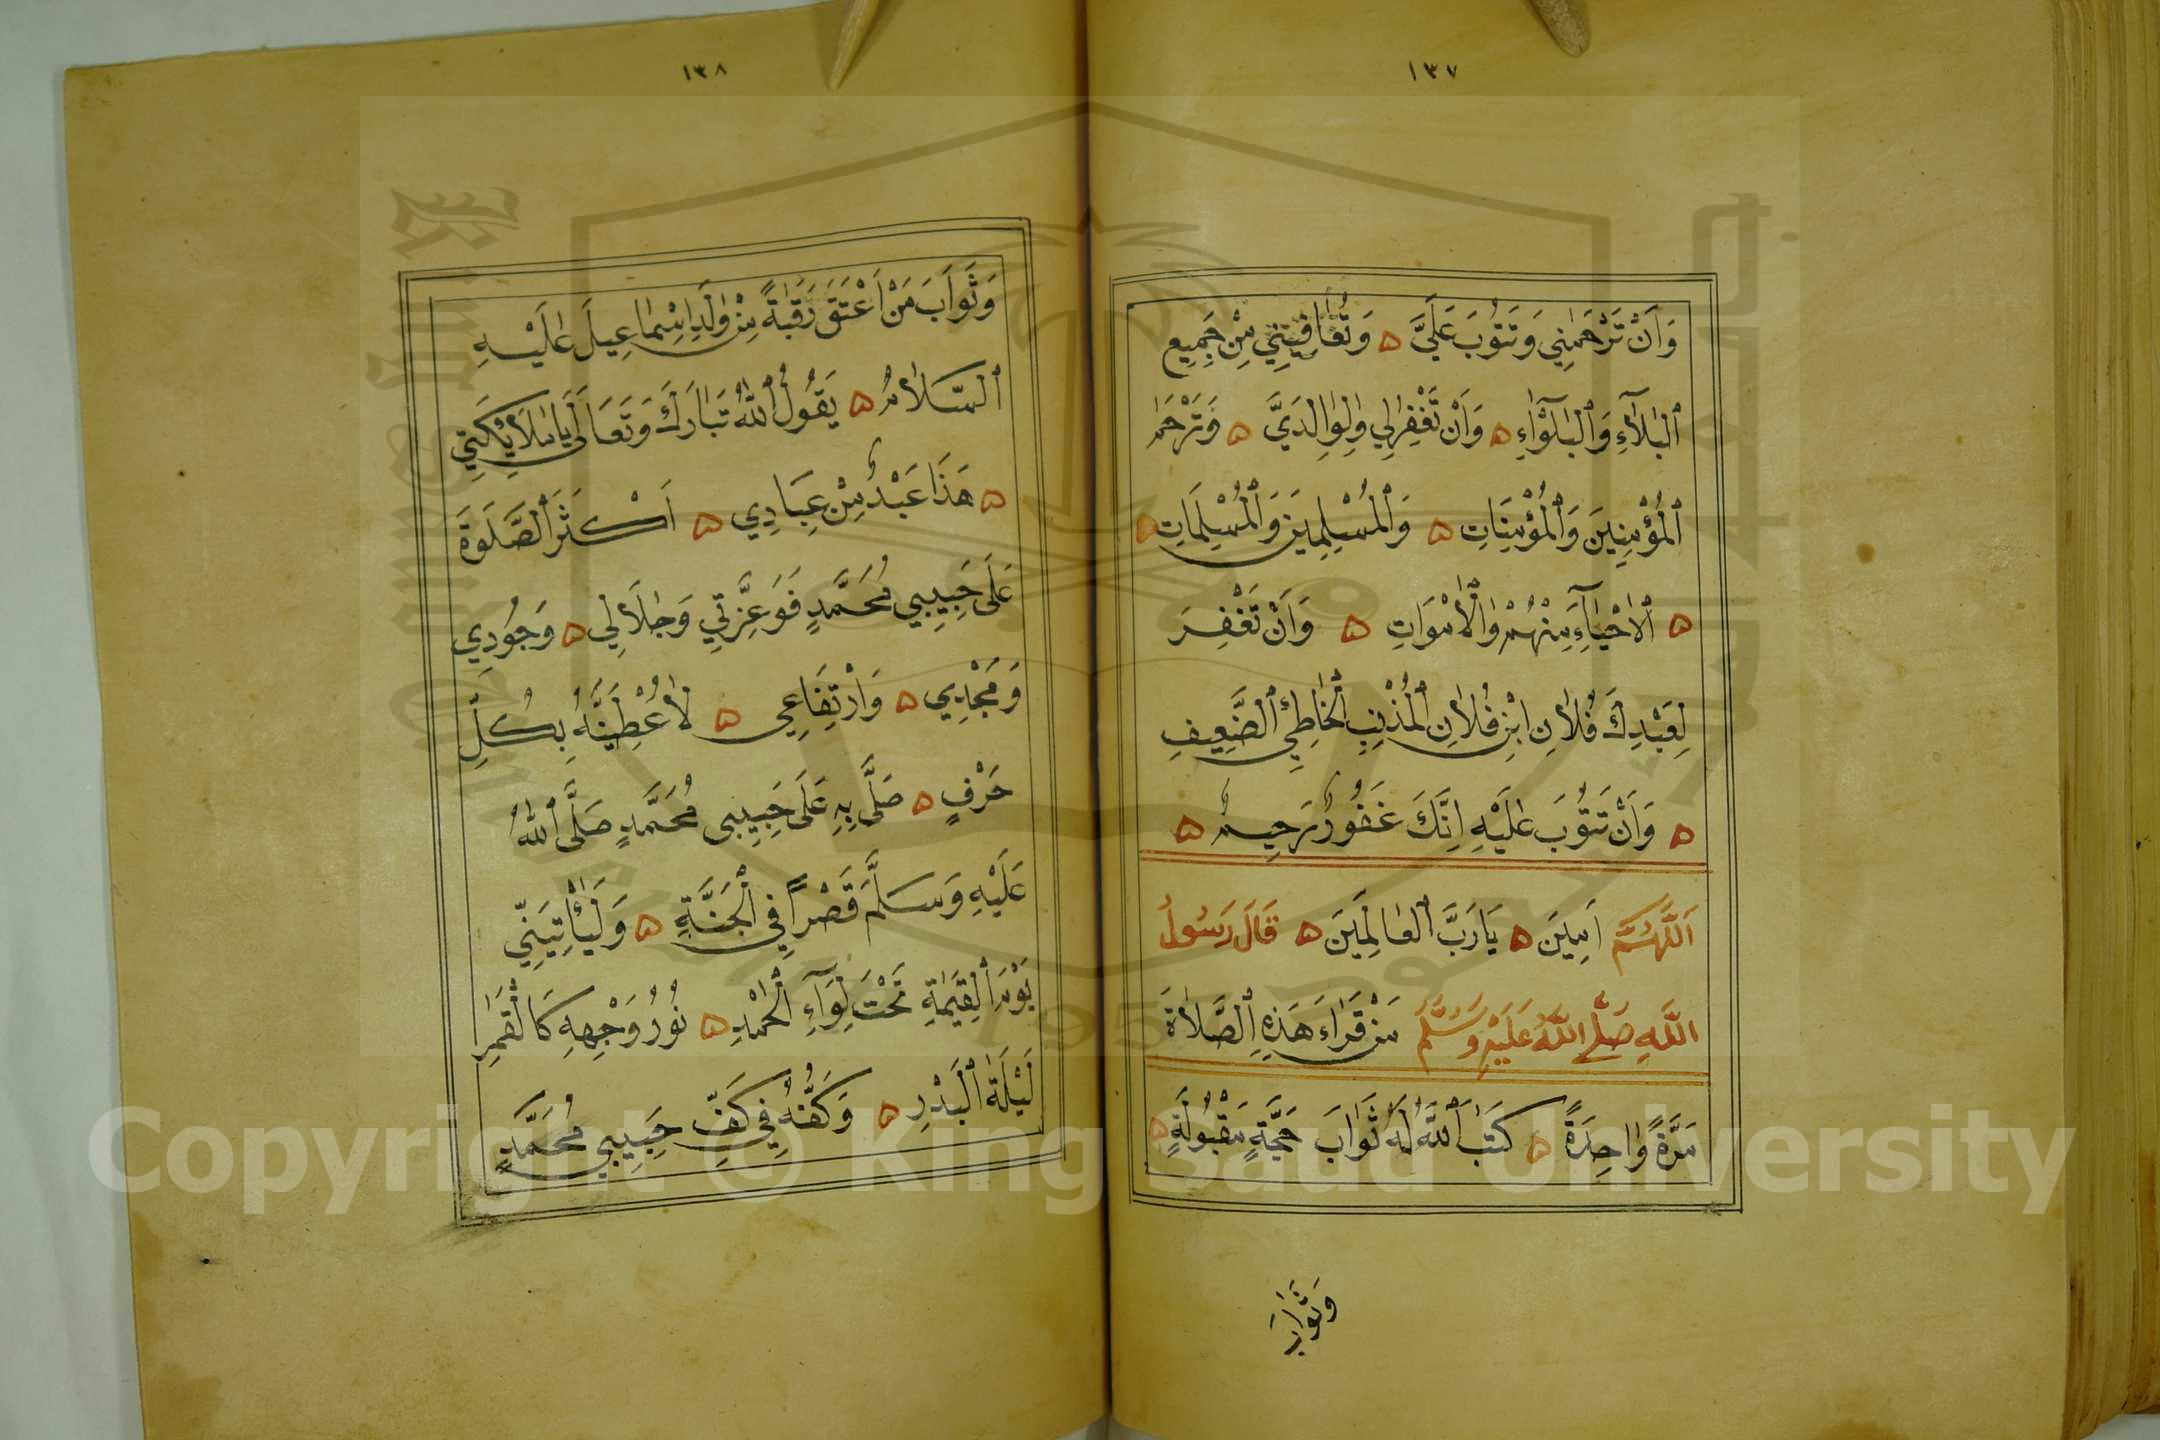 ١٣٧
وَاَنْ تَرْحَمَنِي وَتَتُوبَ عَلَيَّ ۞ وَتُعَافِيَنِي مِنْ جَمِيعِ
ٱلْبَلَآءِ وَٱلْبَلْوَآءِ ۞ وَاَنْ تَغْفِرَلِي وَلِوَالِدَيَّ ۞ وَتَرْحَمَ
ٱلْمُؤْمِنِينَ وَٱلْمُؤْمِنَاتِ ۞ وَٱلْمُسْلِمِينَ وَٱلْمُسْلِمَاتِ ۞
۞ ٱلْاَحْيَآءِ مِنْهُمْ وَٱلْاَمْوَاتِ ۞ وَاَنْ تَغْفِرَ
لِعَبْدِكَ فُلَانِ ابْنِ فُلَانِ ٱلْمُذْنِبِ ٱلْخَاطِئِ ٱلضَّعِيفِ
۞ وَاَنْ تَتُوبَ عَلَيْهِ اِنَّكَ غَفُورٌ رَحِيمٌ ۞
اَللّٰهُمَّ اٰمِينَ ۞ يَارَبَّ ٱلْعَالَمِينَ ۞ قَالَ رَسُولُ
اللّٰهِ صَلَّى اللّٰهُ عَلَيْهِ وَسَلَّمَ مَنْ قَرَاءَ هَذِهِ ٱلصَّلَاةَ
مَرَّةً وَاحِدَةً ۞ كَتَبَ ٱللّٰهُ لَهُ ثَوَابَ حَجَّةٍ مَقْبُولَةٍ ۞
وَثَوَابَ
١٣٨
وَثَوَابَ مَنْ اَعْتَقَ رَقَبَةً مِنْ وَلَدِ اِسْمَاعِيلَ عَلَيْهِ
ٱلسَّلَامُ ۞ يَقُولُ ٱللّٰهُ تَبَارَكَ وَتَعَالَى يَامَلَائِكَتِي
۞ هَذَا عَبْدٌ مِنْ عِبَادِي ۞ اَكْثَرَ ٱلصَّلَوةَ
عَلَى حَبِيبِي مُحَمَّدٍ فَوَعِزَّتِي وَجَلَالِي ۞ وَجُودِي
وَمَجْدِي ۞ وَارْتِفَاعِي ۞ لَاُعْطِيَنَّهُ بِكُلِّ
حَرْفٍ ۞ صَلَّى بِهِ عَلَى حَبِيبِى مُحَمَّدٍ صَلَّى ٱللّٰهُ
عَلَيْهِ وَسَلَّمَ قَصْرًا فِي ٱلْجَنَّةِ ۞ وَلَيَأْتِيَنِّي
يَوْمَ ٱلْقِيٰمَةِ تَحْتَ لِوَآءِ ٱلْحَمْدِ ۞ نُورُ وَجْهِهِ كَالْقَمَرِ
لَيْلَةَ ٱلْبَدْرِ ۞ وَكَفُّهُ فِي كَفِّ حَبِيبِي مُحَمَّدٍ
Copyright © King Saud University